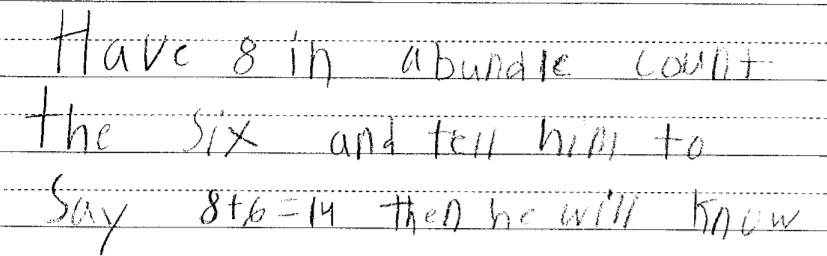 Have 8 in a bundle count
the six and tell him to
Say 8+6=14 then he will know